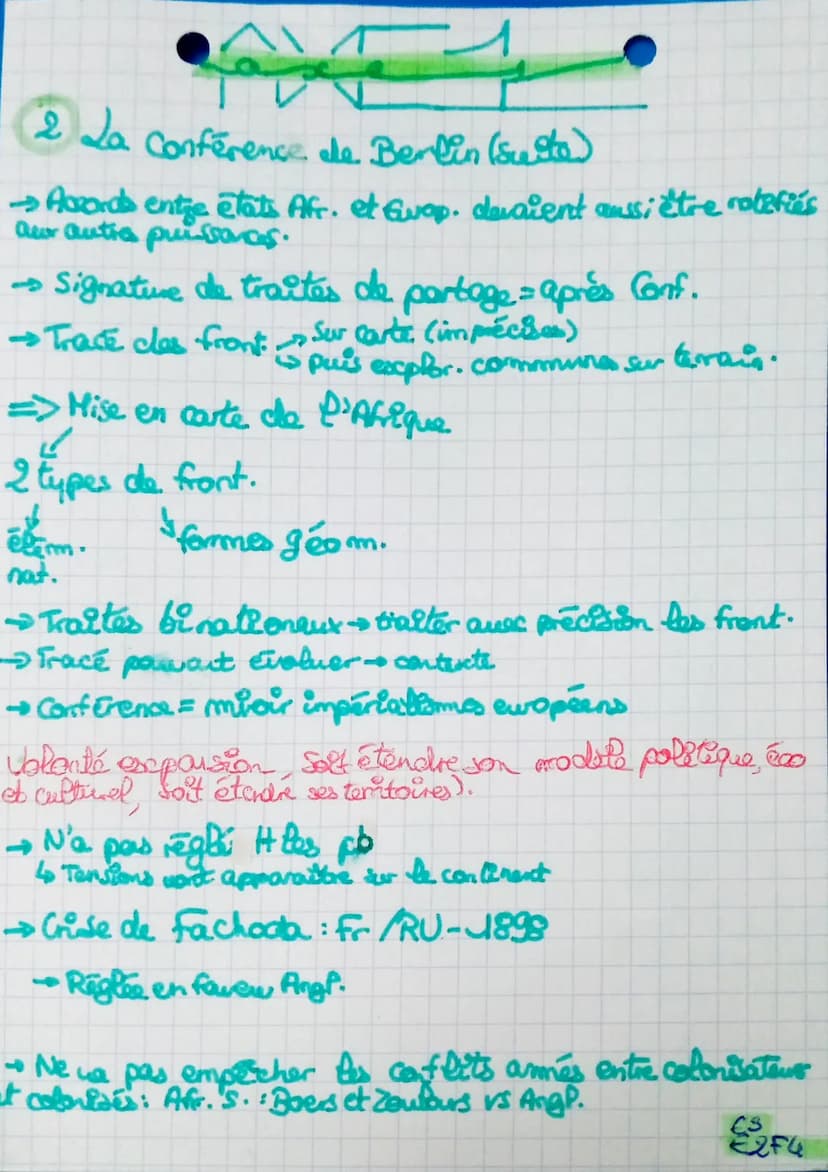 Axe 1
2 La Conférence de Berlin (suite)
→ Accords entre états Afr. et Europ. devaient aussi être ratefiés
aux autres puissances.
→ Signature de traités de partage = après Conf.
→ Tracé des front. → Sur carte (imprécises)
↳ puis explor. communes sur terrain.
=> Mise en carte de l'Afrique
2 types de front.
élém. formes géom.
nat.
→ Traités binationaux → traiter avec précision les front.
→ Tracé pouvant évoluer → contexte
→ Conférence = miroir impérialismes européens
Volonté expansion, soit étendre son modèle politique, éco
et culturel, soit étendre ses territoires).
→ N'a pas réglé tt les pb
↳ Tensions vont apparaître sur le continent
→ Crise de Fachoda : Fr /RU - 1898
→ Réglée en faveur Angl.
→ Ne va pas empêcher les conflits armés entre colonisateur
et colonisés : Afr. S. : Boers et Zoulous vs Angl.
C3
E2F4